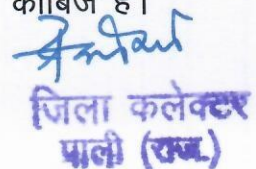 काबिज है।
जिला कलेक्टर
पाली (राज.)